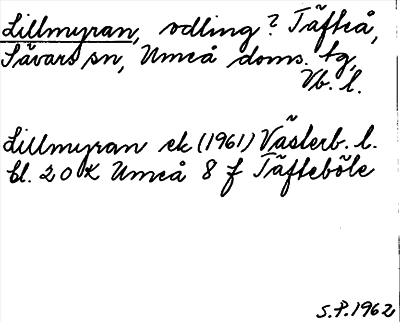 Lillmyran, odling? Täfteå,
Sävars sn, Umeå doms. tg,
Vb. l.
Lillmyran ek (1961) Västerb. l.
bl. 20 K Umeå 8 f Täfteböle
S.P. 1962